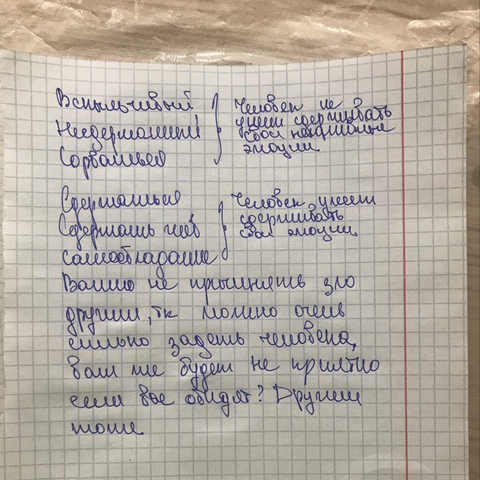 Вспыльчивый
Несдержанный
Сорваться
Человек не
умеет сдерживать
свои негативные
эмоции
Сдержаться
Сдержать гнев
самообладание
Человек умеет
сдерживать
свои эмоции
Важно не причинять зло
другим, тк можно очень
сильно задеть человека,
вам же будет не приятно
если вас обидят? Другим
тоже